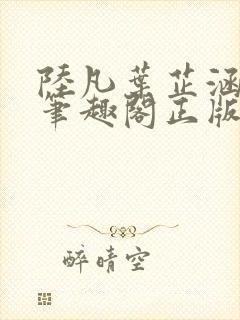 陸凡葉芷涵
筆趣閣正版
醉晴空